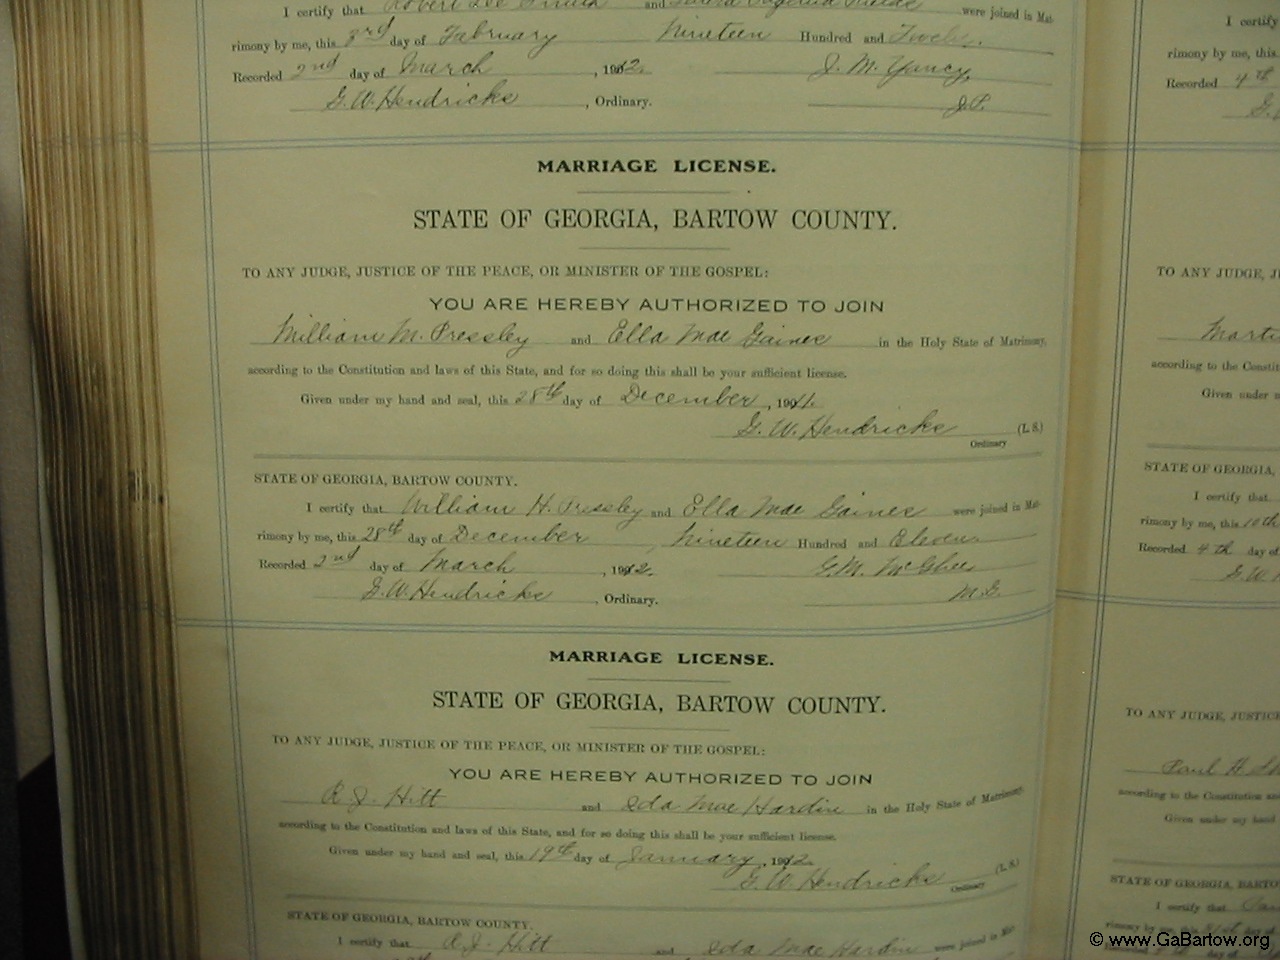 I certify that Robert Lee Smith and were joined in Mat-
rimony by me, this 3rd day of February Nineteen Hundred and Twelve.
Recorded 2nd day of March, 1912. J. M. Yancy,
G. W. Hendricks, Ordinary. J.P.
MARRIAGE LICENSE.
STATE OF GEORGIA, BARTOW COUNTY.
TO ANY JUDGE, JUSTICE OF THE PEACE, OR MINISTER OF THE GOSPEL:
YOU ARE HEREBY AUTHORIZED TO JOIN
William M. Pressley and Ella Mae Gaines in the Holy State of Matrimony,
according to the Constitution and laws of this State, and for so doing this shall be your sufficient license.
Given under my hand and seal, this 28th day of December, 1911.
G. W. Hendricks (L. S.)
Ordinary
STATE OF GEORGIA, BARTOW COUNTY.
I certify that William H. Pressley and Ella Mae Gaines were joined in Mat-
rimony by me, this 28th day of December, Nineteen Hundred and Eleven
Recorded 2nd day of March, 1912. G. M. McGhee
G. W. Hendricks, Ordinary. M. G.
MARRIAGE LICENSE.
STATE OF GEORGIA, BARTOW COUNTY.
TO ANY JUDGE, JUSTICE OF THE PEACE, OR MINISTER OF THE GOSPEL:
YOU ARE HEREBY AUTHORIZED TO JOIN
R. J. Hitt and Ida Mae Hardin in the Holy State of Matrimony,
according to the Constitution and laws of this State, and for so doing this shall be your sufficient license.
Given under my hand and seal, this 19th day of January, 1912.
G. W. Hendricks (L. S.)
Ordinary
STATE OF GEORGIA, BARTOW COUNTY.
I certify that R. J. Hitt and Ida Mae Hardin were joined in Mat-
I certify
rimony by me, this
Recorded 4th
TO ANY JUDGE, J
Marti
according to the Constit
Given under
STATE OF GEORGIA,
I certify that
rimony by me, this 10th
Recorded 4th day of
G. W.
TO ANY JUDGE, JUSTICE
Paul H
according to the Constitution and
Given under my hand
STATE OF GEORGIA, BARTO
I certify that
rimony by me, this day of
© www.GaBartow.org